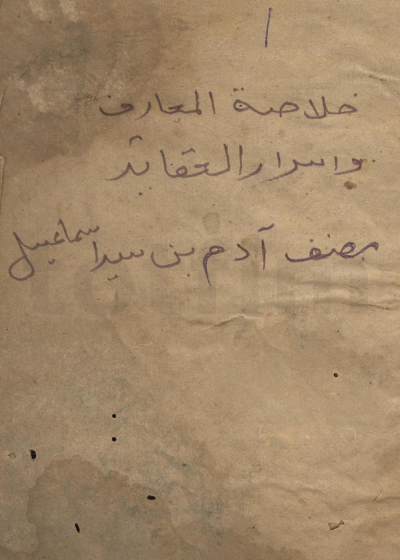 ١
خلاصة المعارف
واسرار العقائد
مصنف آدم بن سيد اسماعيل